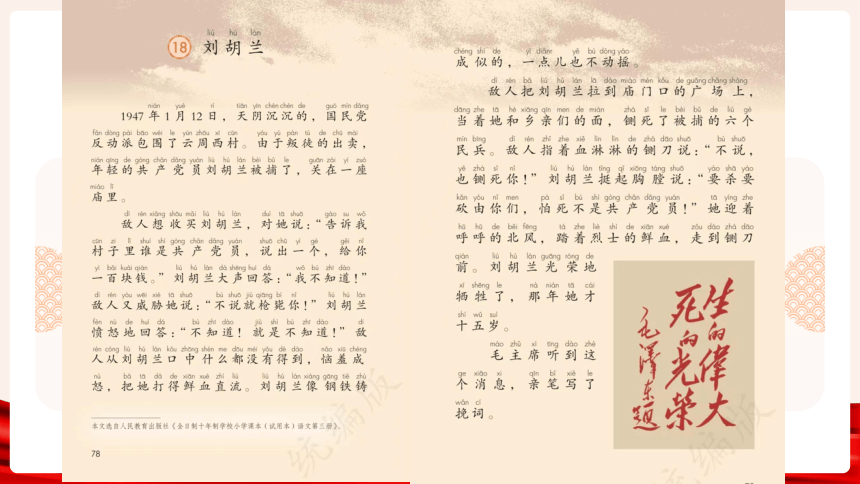 liú hú lán
18 刘胡兰
nián yuè rì tiān yīn chén chén de guó mín dǎng
1947 年 1 月 12 日，天阴沉沉的，国民党
fǎn dòng pài bāo wéi le yún zhōu xī cūn yóu yú pàn tú de chū mài
反动派包围了云周西村。由于叛徒的出卖，
nián qīng de gòng chǎn dǎng yuán liú hú lán bèi bǔ le guān zài yí zuò
年轻的共产党员刘胡兰被捕了，关在一座
miào lǐ
庙里。
dí rén xiǎng shōu mǎi liú hú lán duì tā shuō gào su wǒ
敌人想收买刘胡兰，对她说：“告诉我
cūn zi lǐ shuí shì gòng chǎn dǎng yuán shuō chū yí gè gěi nǐ
村子里谁是共产党员，说出一个，给你
yì bǎi kuài qián liú hú lán dà shēng huí dá wǒ bù zhī dào
一百块钱。”刘胡兰大声回答：“我不知道！”
dí rén yòu wēi xié tā shuō bù shuō jiù qiāng bì nǐ liú hú lán
敌人又威胁她说：“不说就枪毙你！”刘胡兰
fèn nù de huí dá bù zhī dào jiù shì bù zhī dào dí
愤怒地回答：“不知道！就是不知道！”敌
rén cóng liú hú lán kǒu zhōng shén me dōu méi yǒu dé dào nǎo xiū chéng
人从刘胡兰口中什么都没有得到，恼羞成
nù bǎ tā dǎ de xiān xuè zhí liú liú hú lán xiàng gāng tiě zhù
怒，把她打得鲜血直流。刘胡兰像钢铁铸
本文选自人民教育出版社《全日制十年制学校小学课本（试用本）语文第三册》。
78
chéng shì de yì diǎnr yě bú dòng yáo
成似的，一点儿也不动摇。
dí rén bǎ liú hú lán lā dào miào mén kǒu de guǎng chǎng shàng
敌人把刘胡兰拉到庙门口的广场上，
dāng zhe tā hé xiāng qīn men de miàn zhá sǐ le bèi bǔ de liù gè
当着她和乡亲们的面，铡死了被捕的六个
mín bīng dí rén zhǐ zhe xiě lín lín de zhá dāo shuō bù shuō
民兵。敌人指着血淋淋的铡刀说：“不说，
yě zhá sǐ nǐ liú hú lán tǐng qǐ xiōng táng shuō yào shā yào
也铡死你！”刘胡兰挺起胸膛说：“要杀要
kǎn yóu nǐ men pà sǐ bú shì gòng chǎn dǎng yuán tā yíng zhe
砍由你们，怕死不是共产党员！”她迎着
hū hū de běi fēng tà zhe liè shì de xiān xuè zǒu dào zhá dāo
呼呼的北风，踏着烈士的鲜血，走到铡刀
qián liú hú lán guāng róng de
前。刘胡兰光荣地
xī shēng le nà nián tā cái
牺牲了，那年她才
shí wǔ suì
十五岁。
máo zhǔ xí tīng dào zhè
毛主席听到这
ge xiāo xi qīn bǐ xiě le
个消息，亲笔写了
wǎn cí
挽词。
生的偉大
死的光榮
毛澤東題
统编版
统编版